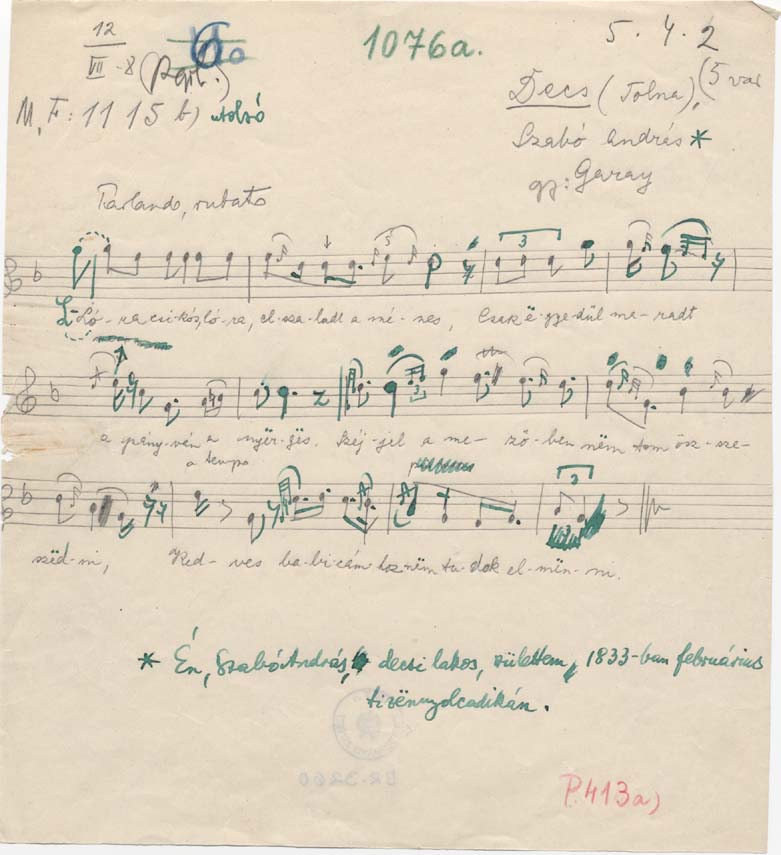 12
VII -8
6
1076a.
5. 4. 2
M. F: 1115 b) utolsó
Decs (Tolna), (5 var
Szabó András *
gy: Garay
Parlando, rubato
Ló-ra csi-kós, ló-ra, el-sza-ladt a mé-nes, Csak ë-gye-dül ma-radt
a gyöngy-vén a nyër-gës. Széj-jel a me-ző-ben nëm tom ösz-sze-
a tempo
szëd-ni, Ked-ves ba-bi-cám hoz nëm tu-dok el-mën-ni.
* Én, Szabó András, decsi lakos, születtem, 1833-ban február​ius
tizënnyolcadikán.
BR-3260
P. 413a)